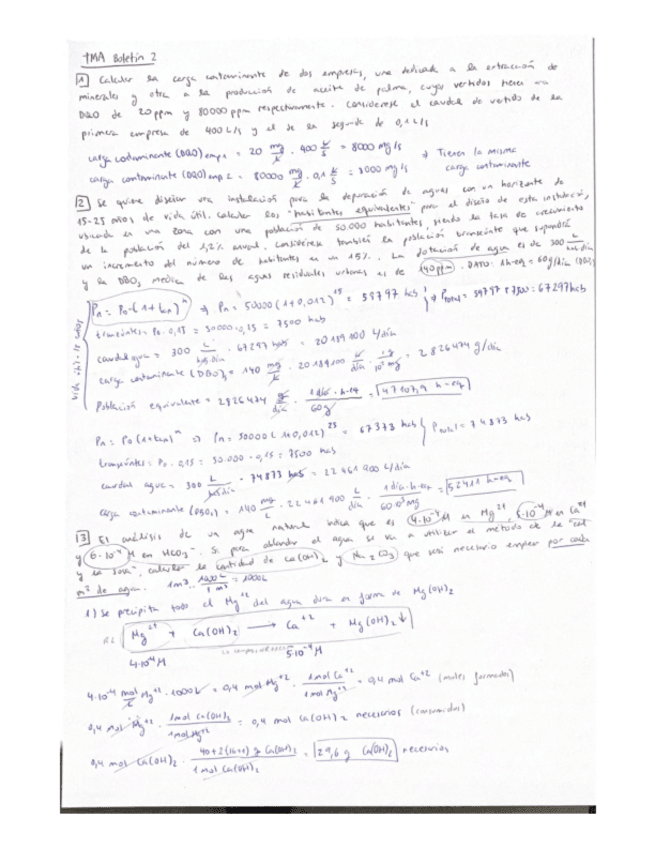 TMA Boletín 2
1 Calcular la carga contaminante de dos empresas, una dedicada a la extracción de
minerales y otra a la producción de aceite de palma, cuyos vertidos tienen una
DQO de 20 ppm y 80000 ppm respectivamente. Considérese el caudal de vertido de la
primera empresa de 400 L/s y el de la segunda de 0,1 L/s
carga contaminante (DQO) emp 1 = 20 mg/L · 400 L/s = 8000 mg/s → Tienen la misma
carga contaminante (DQO) emp 2 = 80000 mg/L · 0,1 L/s = 8000 mg/s carga contaminante
2 Se quiere diseñar una instalación para la depuración de aguas con un horizonte de
15-25 años de vida útil. Calcular los "habitantes equivalentes" para el diseño de esta instalación,
ubicada en una zona con una población de 50.000 habitantes, siendo la tasa de crecimiento
de la población del 1,2% anual. Considérese también la población transeúnte que supondrá
un incremento del número de habitantes en un 15%. La dotación de agua es de 300 L/hab·día
y la DBO5 media de las aguas residuales urbanas es de 140 ppm. DATO: 1 h-eq = 60 g/día (DBO5)
Pn = Po·(1+tn)^n → Pn = 50000(1+0,012)^15 = 59797 hab } Ptotal = 59797 + 7500 = 67297 hab
transeúntes = Po · 0,15 = 50000 · 0,15 = 7500 hab
caudal agua = 300 L/hab·día · 67297 hab = 20189100 L/día
vida útil = 15 años
carga contaminante (DBO)5 = 140 mg/L · 20189100 L/día · 1g/10³ mg = 2826474 g/día
Población equivalente = 2826474 g/día · 1 día·h-eq/60 g = 47107,9 h-eq
Pn = Po(1+tn)^n => Pn = 50000(1+0,012)^25 = 67373 hab } Ptotal = 74873 hab
transeúntes = Po · 0,15 = 50.000 · 0,15 = 7500 hab
caudal agua = 300 L/hab·día · 74873 hab = 22461900 L/día
carga contaminante (DBO5) = 140 mg/L · 22461900 L/día · 1 día·h-eq/60·10³ mg = 52411 h-eq
3 El análisis de un agua natural indica que es 4·10⁻⁴ M en Mg²⁺, 5·10⁻⁴ M en Ca²⁺
y 6·10⁻⁴ M en HCO₃⁻. Si para ablandar el agua se va a utilizar el método de la "cal
y la sosa", calcular la cantidad de Ca(OH)₂ y Na₂CO₃ que será necesario emplear por cada
m³ de agua. 1m³ · 1000 L/1 m³ = 1000 L
1) Se precipita todo el Mg⁺² del agua dura en forma de Mg(OH)₂
Mg²⁺ + Ca(OH)₂ → Ca⁺² + Mg(OH)₂↓
4·10⁻⁴ M 5·10⁻⁴ M
4·10⁻⁴ mol/L Mg⁺² · 1000 L = 0,4 mol Mg⁺² · 1 mol Ca⁺²/1 mol Mg⁺² = 0,4 mol Ca⁺² (moles formados)
0,4 mol Mg⁺² · 1 mol Ca(OH)₂/1 mol Mg⁺² = 0,4 mol Ca(OH)₂ necesarios (consumidos)
0,4 mol Ca(OH)₂ · 40+2(16+1) g Ca(OH)₂/1 mol Ca(OH)₂ = 29,6 g Ca(OH)₂ necesarios